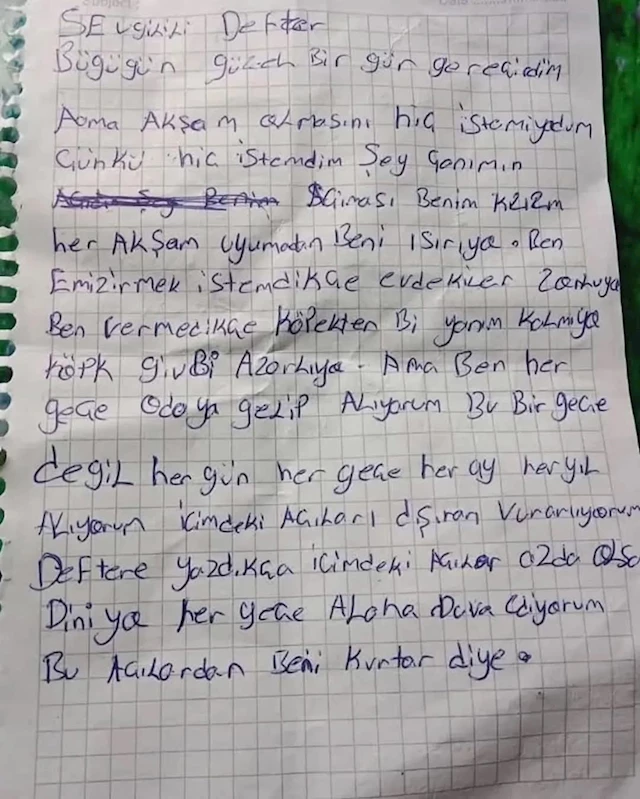 SEvgiLiLi DeFter
Bügügün güzeh Bir gün gereğidim
Aoma AKŞam oLmasını hiG istemiyodum
Günkü hiG istemdim Şey Ganımın
SGıması Benim KızIm
her AKŞam uyumadan Beni ısırıya. Ben
Emizirmek istemdikGe evdekiLer Zorluya
Ben vermedikGe Köpekten Bi yanım KaLmiya
Köpk givBi AzorLıya. Ama Ben her
geGe Odoya geLip ALıyorum Bu Bir geGe
degiL her gün her geGe her ay her yıL
ALıyorum içimdeki AGıLarı dışıran VurarLıyorum
DeFtere yazdıkGa içimdeki AGıLar azda OLSa
Diniya her geGe ALaha Dava Ediyorum
Bu AGıLardan Beni Kurtar diye.